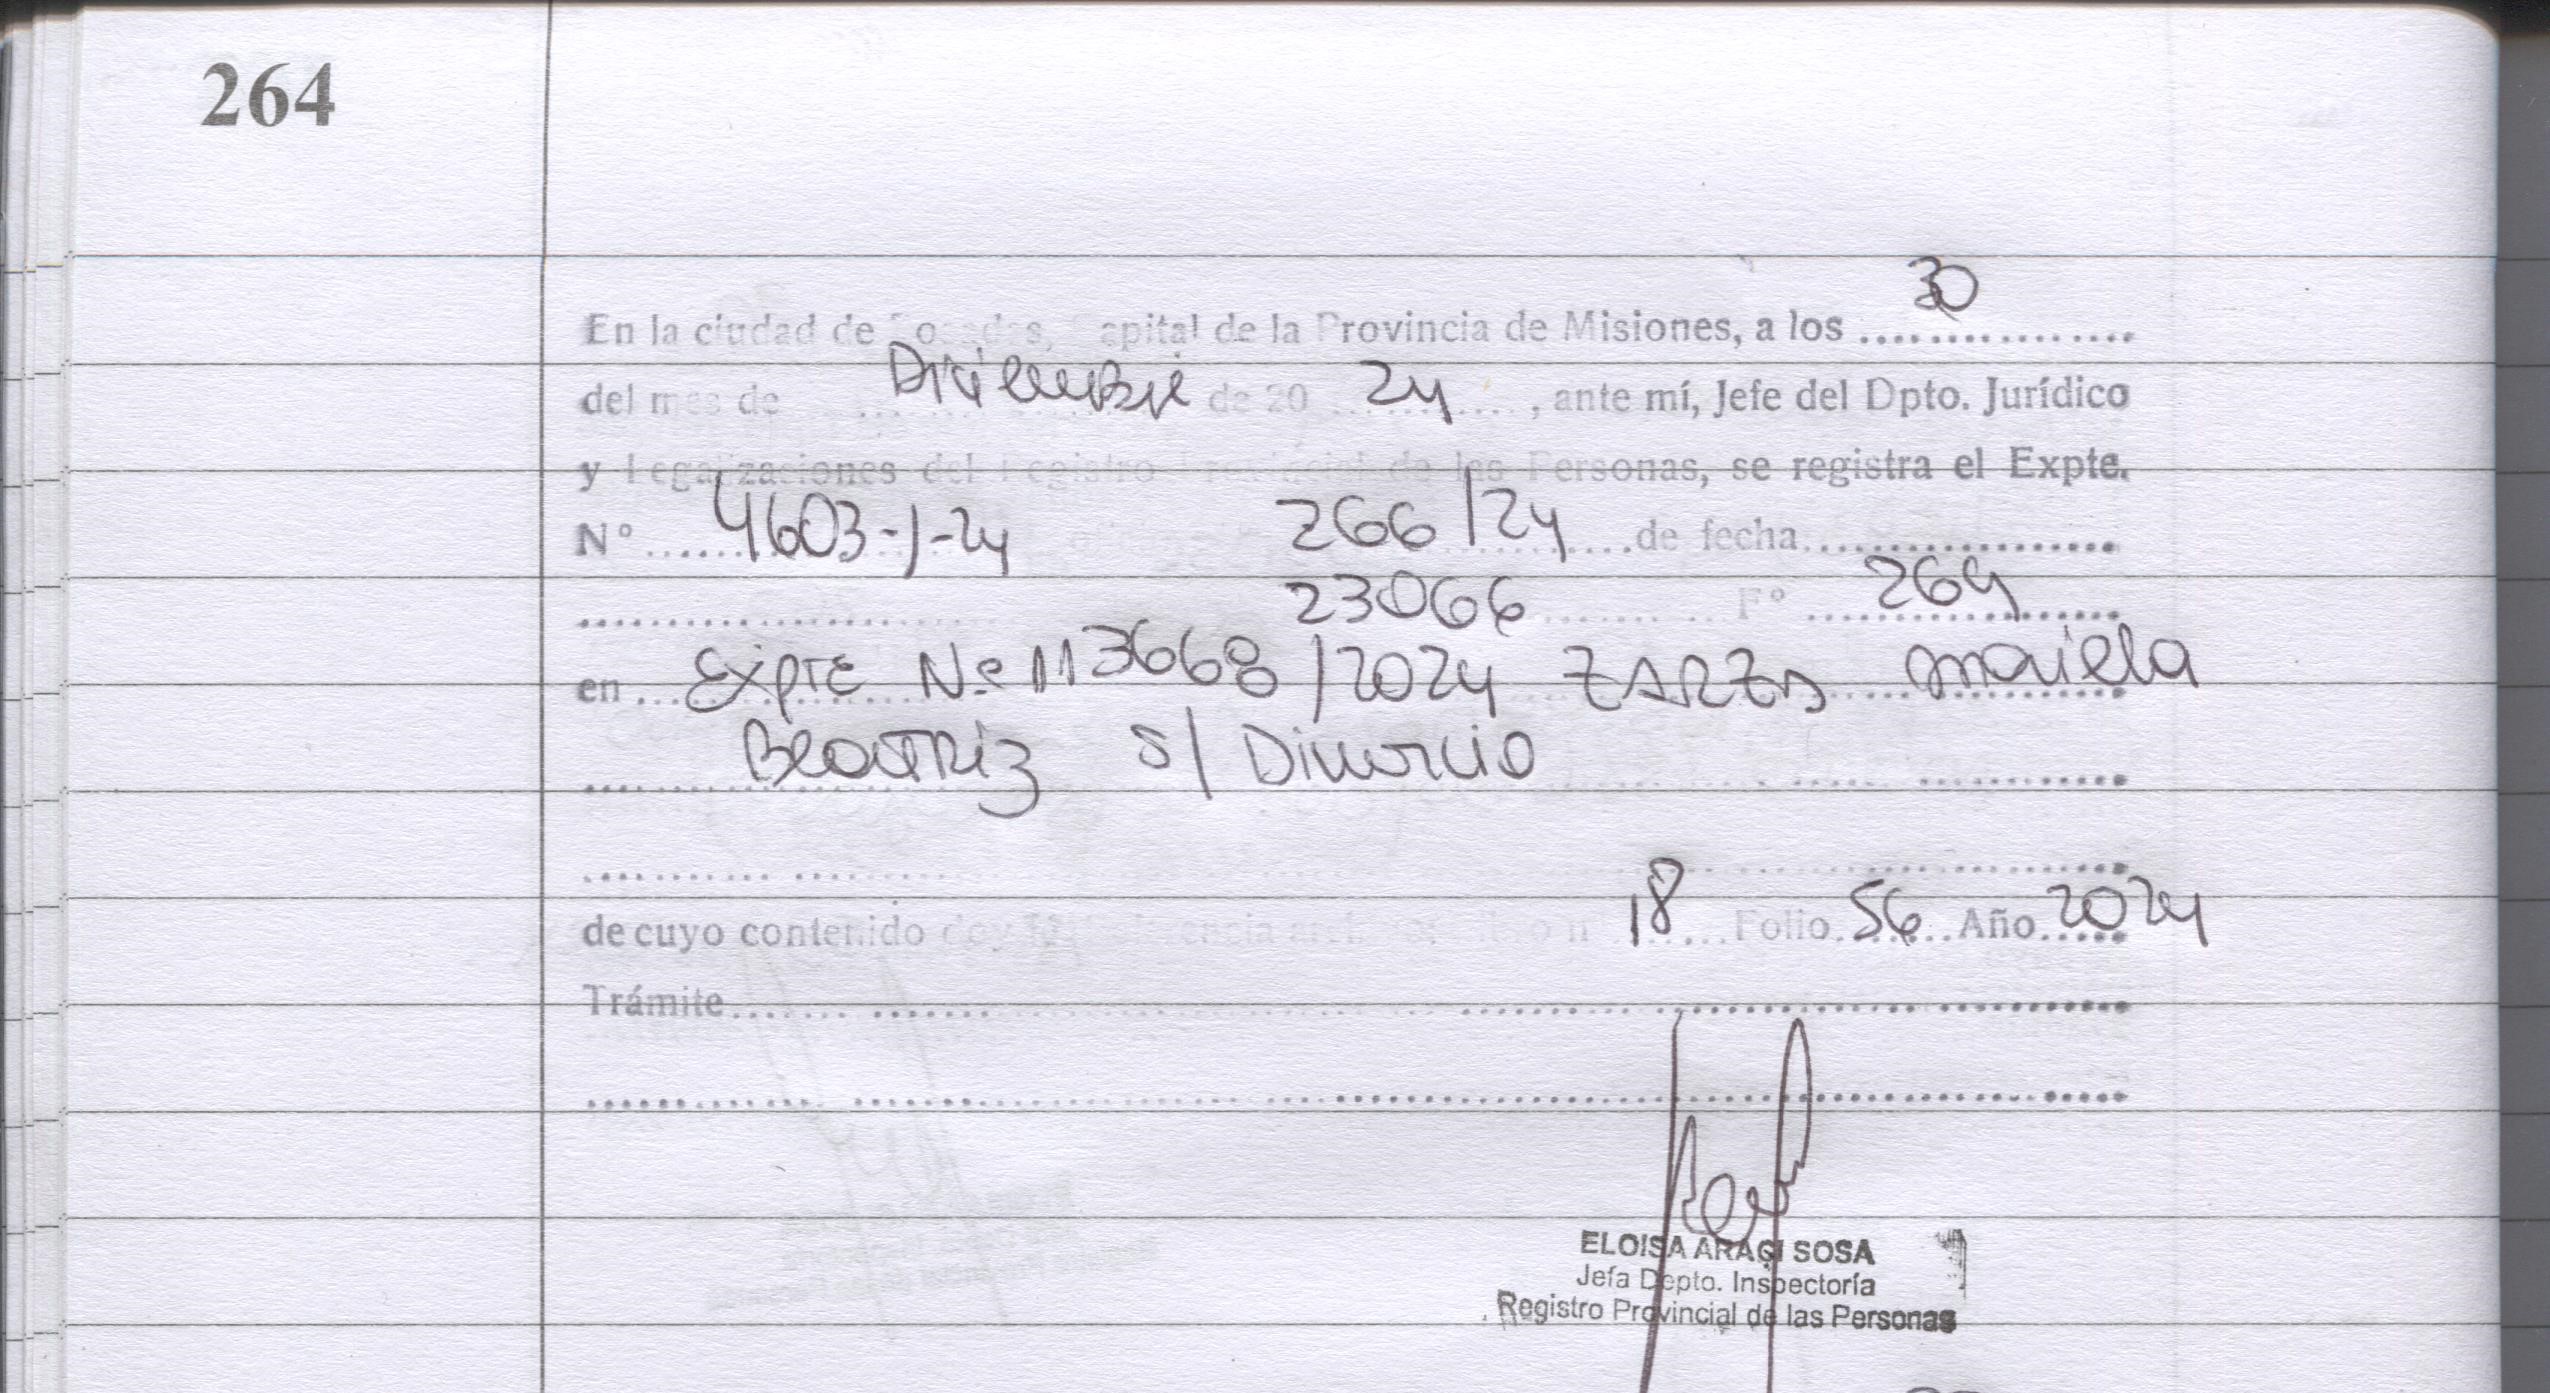 264
En la ciudad de Posadas, Capital de la Provincia de Misiones, a los 30
del mes de Diciembre de 20 24, ante mí, Jefe del Dpto. Jurídico
y Legalizaciones del Registro Provincial de las Personas, se registra el Expte.
Nº 4603-J-24 266/24 de fecha
23066 Fº 264
en Expte Nº 113668/2024 ZARZA Mariela
Beatriz s/ Divorcio
de cuyo contenido doy fe 18 Folio 56 Año 2024
Trámite
ELOISA ARACI SOSA
Jefa Depto. Inspectoría
Registro Provincial de las Personas